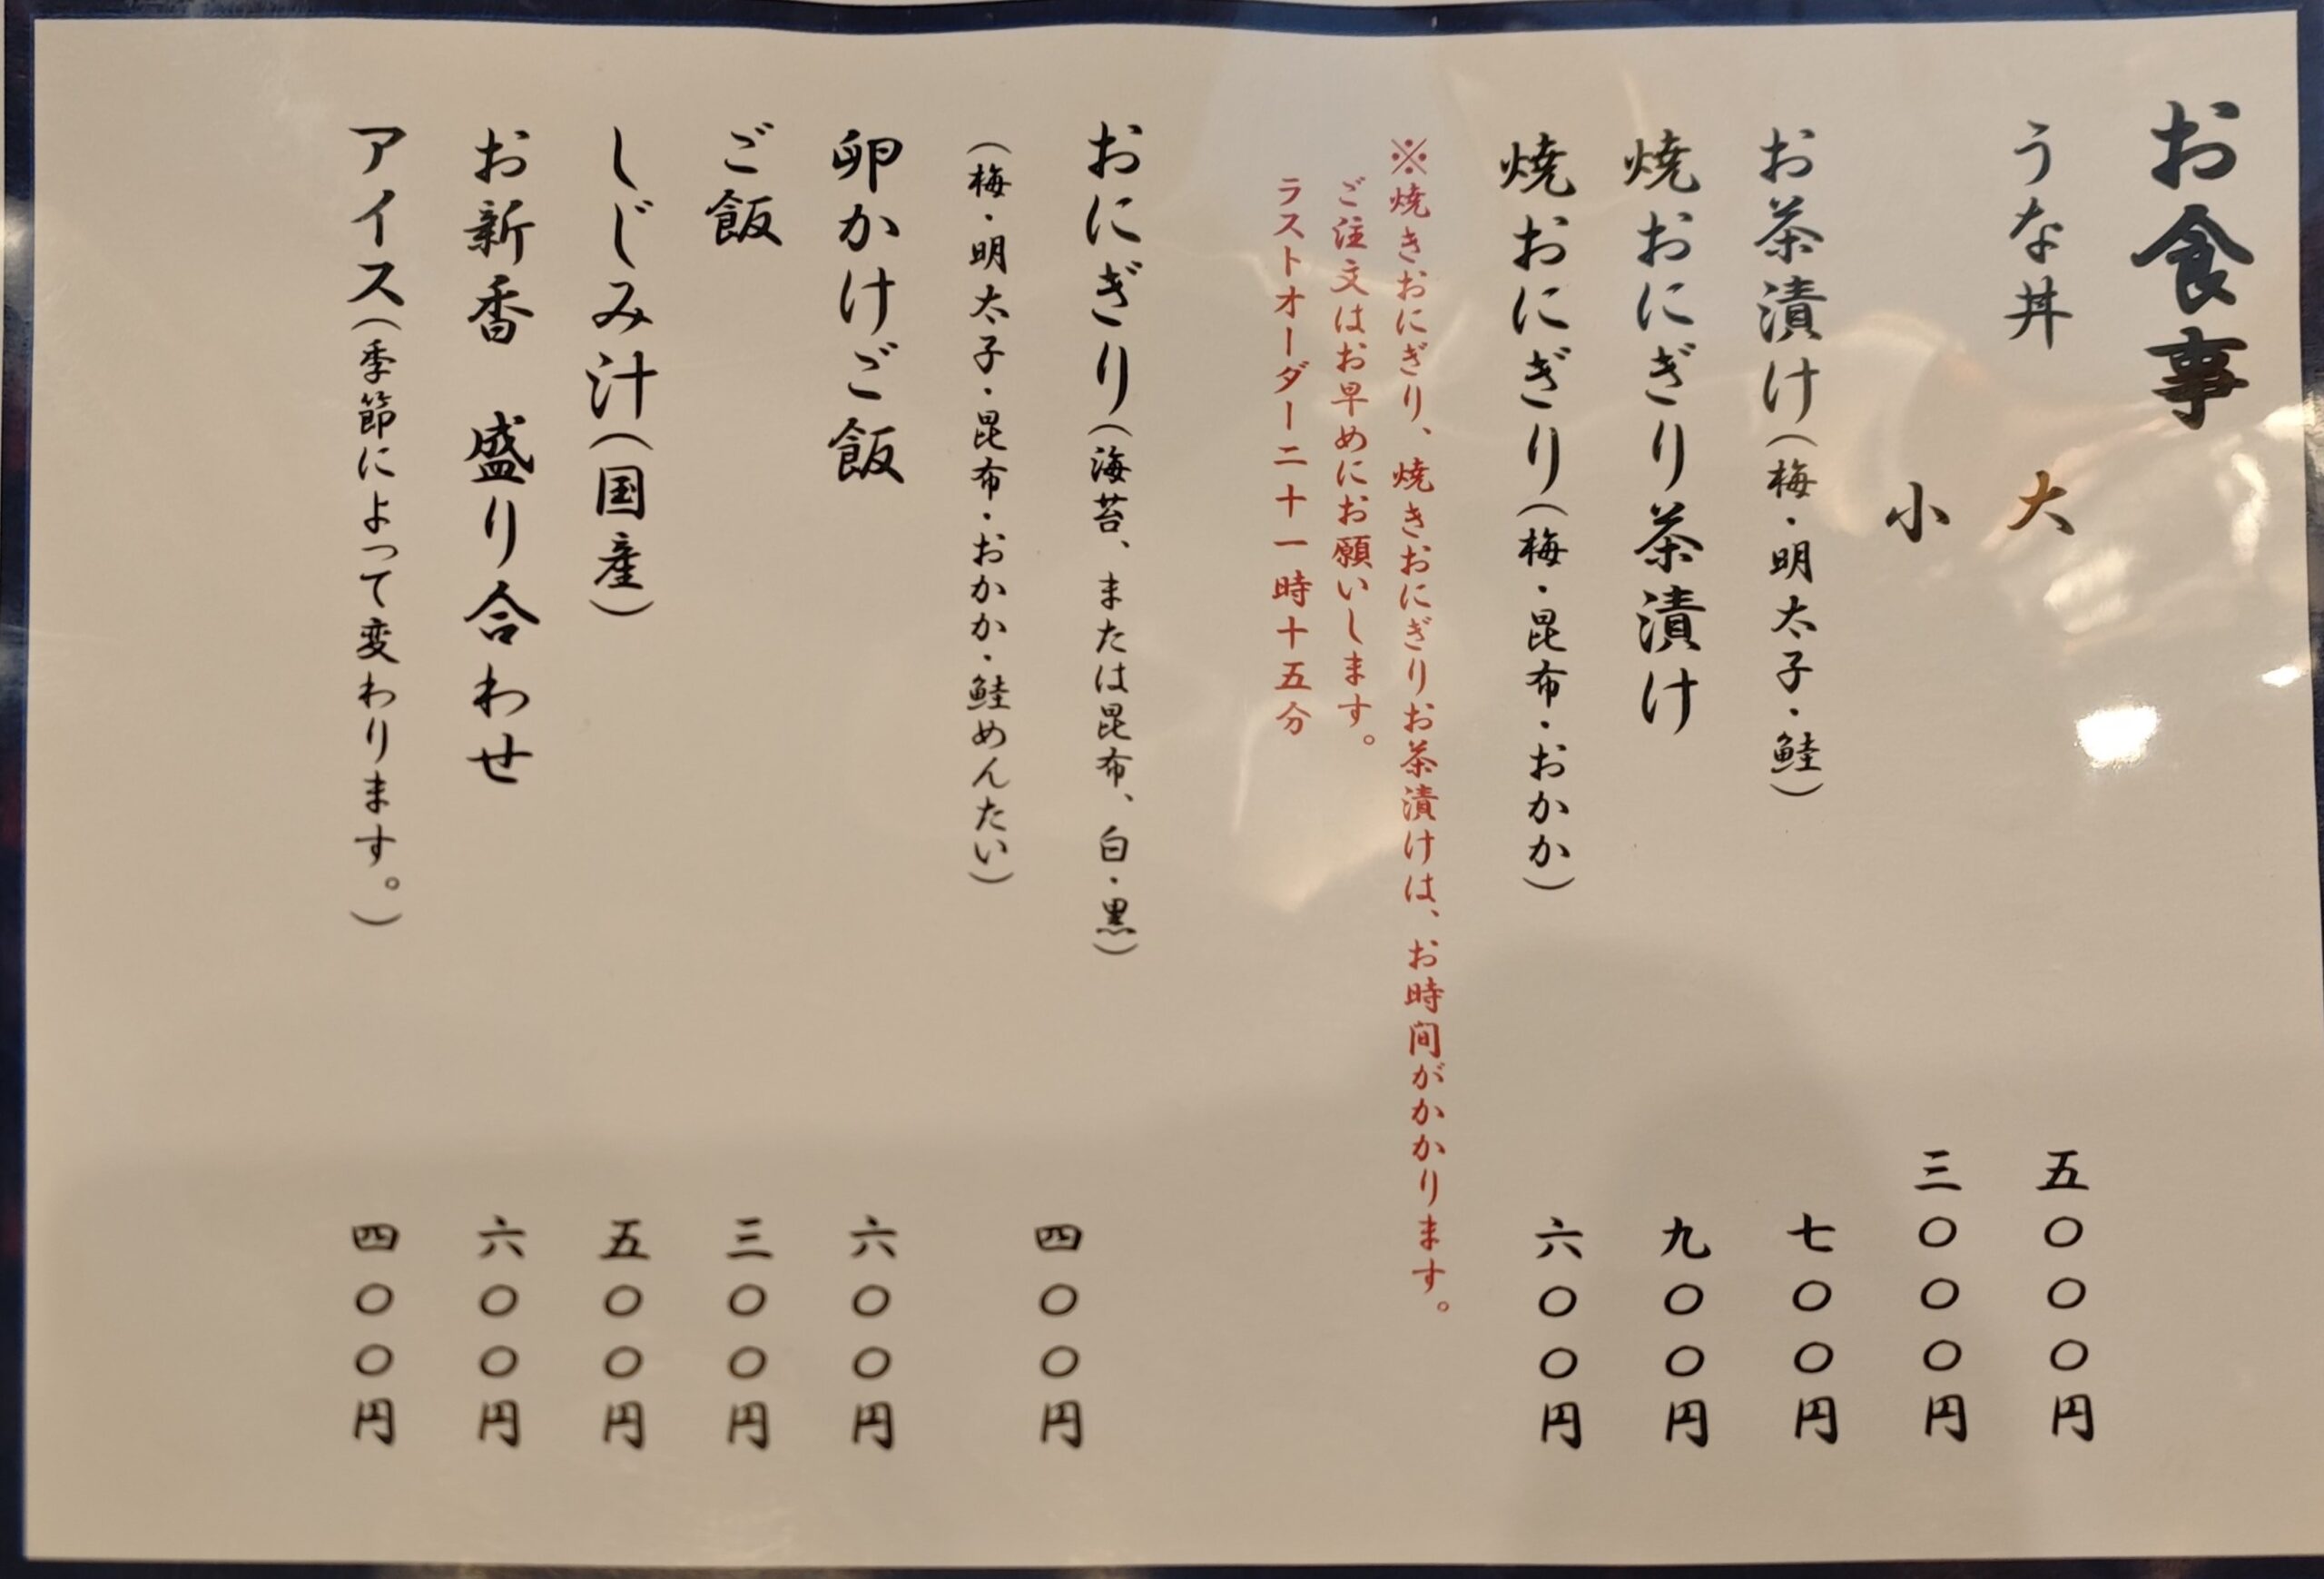 お食事
うな丼　大　五〇〇〇円
小　三〇〇〇円
お茶漬け（梅・明太子・鮭）　七〇〇円
焼おにぎり茶漬け　九〇〇円
焼おにぎり（梅・昆布・おかか）　六〇〇円
※焼きおにぎり、焼きおにぎりお茶漬けは、お時間がかかります。
ご注文はお早めにお願いします。
ラストオーダー二十一時十五分
おにぎり（海苔、または昆布、白・黒）
（梅・明太子・昆布・おかか・鮭めんたい）　四〇〇円
卵かけご飯　六〇〇円
ご飯　三〇〇円
しじみ汁（国産）　五〇〇円
お新香　盛り合わせ　六〇〇円
アイス（季節によって変わります。）　四〇〇円